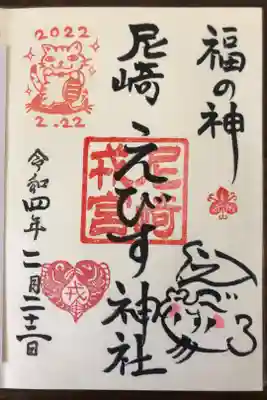 福の神
尼崎えびす神社
尼崎
戎宮
令和四年二月二十二日
2022
2.22
戎